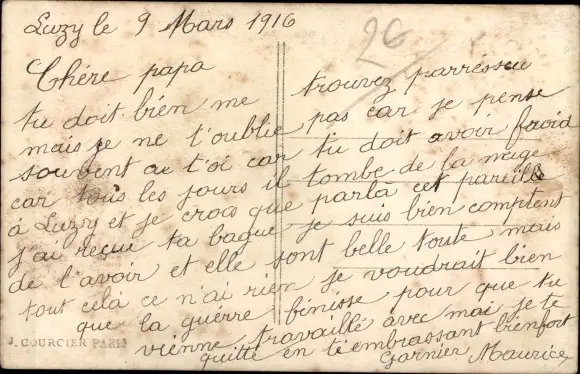 Luzy le 9 Mars 1916
26
Chére papa
tu doit bien me trouvez parrésseu
mais je ne t'oublie pas car je pense
souvent a t'oi car tu doit avoir froid
car tous les jours il tombe de la neige
à Luzy et je crois que parla cet pareille
j'ai reçue ta bague je suis bien comptent
de l'avoir et elle sont belle toute mais
tout celà ce n'ai rien je voudrait bien
que la guérre finisse pour que tu
vienne travaillé avec moi je te
quitte en t'émbrassant bienfort
Garnier Maurice
J. COURCIER PARIS